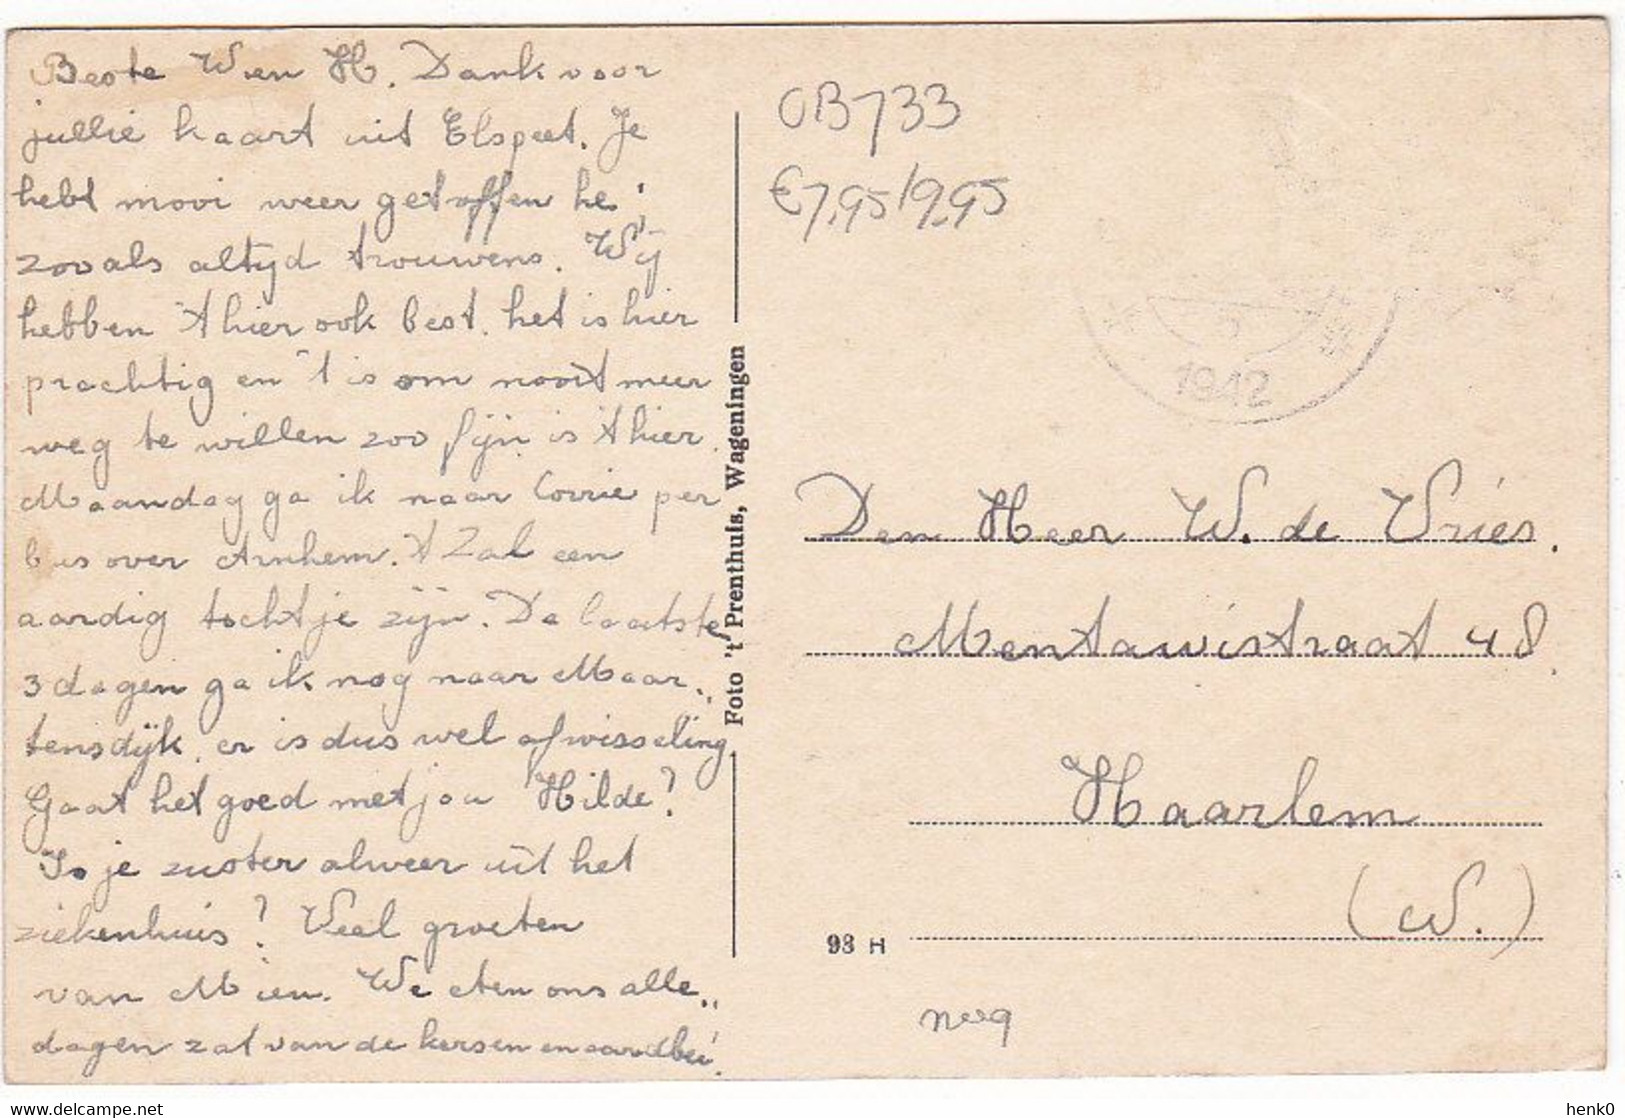 Beste W en H. Dank voor
jullie kaart uit Elspeet. Je
hebt mooi weer getroffen he!
zooals altijd trouwens. Wij
hebben 't hier ook best. het is hier
prachtig en 't is om nooit meer
weg te willen zoo fijn is 't hier.
Maandag ga ik naar Corrie per
bus over Arnhem. 't Zal een
aardig tochtje zijn. De laatste
3 dagen ga ik nog naar Maar„
tensdijk, er is dus wel afwisseling
Gaat het goed met jou Hilde?
Is je zuster alweer uit het
ziekenhuis? Veel groeten
van Mien. We eten ons alle„
dagen zat van de kersen en aardbei.
Foto 't Prenthuis, Wageningen
OB733
€7,95/9,95
1942
Den Heer W. de Vries.
Mentawistraat 48.
Haarlem
(W.)
93 H
henk0
www.delcampe.net